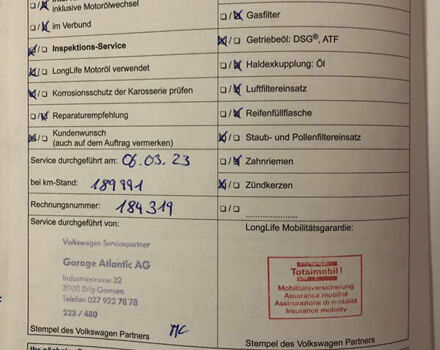 inklusive Motorölwechsel
im Verbund
Inspektions-Service
LongLife Motoröl verwendet
Korrosionsschutz der Karosserie prüfen
Reparaturempfehlung
Kundenwunsch
(auch auf dem Auftrag vermerken)
Service durchgeführt am: 06.03.23
bei km-Stand: 189991
Rechnungsnummer: 184319
Service durchgeführt von:
Volkswagen Servicepartner
Garage Atlantic AG
Industriestrasse 32
3900 Brig-Gamsen
Telefon 027 922 78 78
223 / 480
Stempel des Volkswagen Partners
Gasfilter
Getriebeöl: DSG®, ATF
Haldexkupplung: Öl
Luftfiltereinsatz
Reifenfüllflasche
Staub- und Pollenfiltereinsatz
Zahnriemen
Zündkerzen
LongLife Mobilitätsgarantie:
Totalmobil!
Mobilitätsversicherung
Assurance mobilité
Assicurazione di mobilità
Insurance mobility
Stempel des Volkswagen Partners